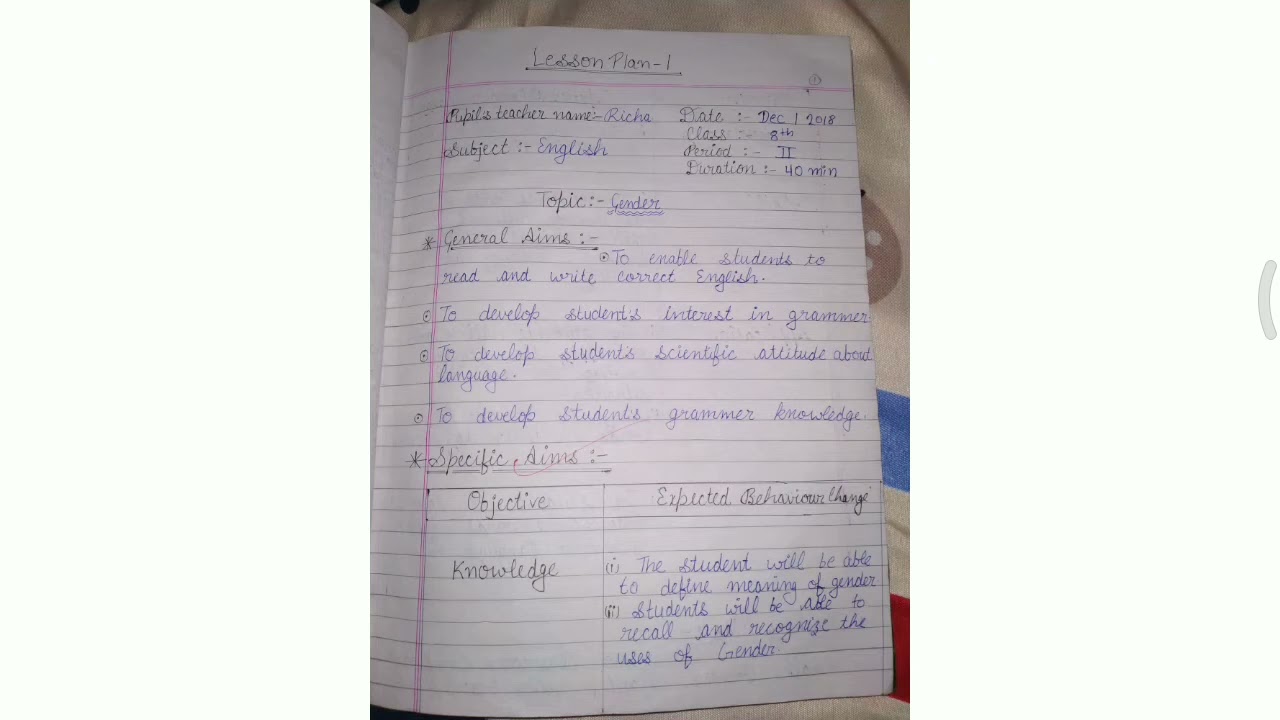 Lesson Plan-1
①
Pupil's teacher name:- Richa
Date :- Dec 1 2018
Class :- 8th
Subject :- English
Period :- II
Duration :- 40 min
Topic:- Gender
* General Aims :-
⊙ To enable students to
read and write correct English.
⊙ To develop student's interest in grammer.
⊙ To develop student's scientific attitude about
language.
⊙ To develop student's grammer knowledge.
* Specific Aims :-
Objective
Expected Behaviour Change
Knowledge
(i) The student will be able
to define meaning of gender
(ii) Students will be able to
recall and recognize the
uses of Gender.